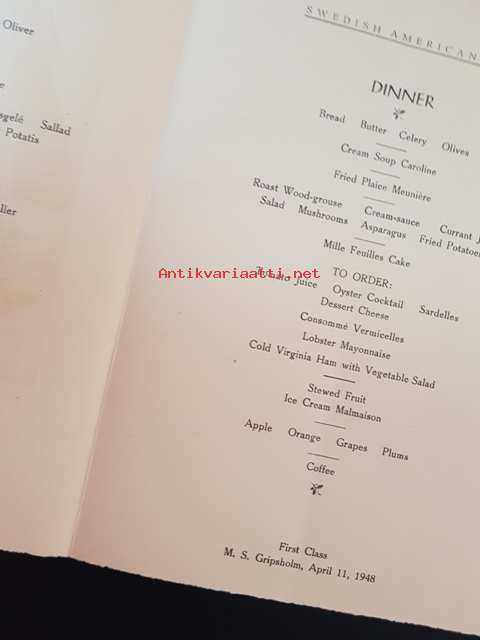 Oliver
Sallad
Potatis
SWEDISH AMERICAN
DINNER
Bread Butter Celery Olives
Cream Soup Caroline
Fried Plaice Meunière
Roast Wood-grouse Cream-sauce Currant
Salad Mushrooms Asparagus Fried Potatoes
Mille Feuilles Cake
TO ORDER:
Antikvariaatti.net
Tomato Juice Oyster Cocktail Sardelles
Dessert Cheese
Consommé Vermicelles
Lobster Mayonnaise
Cold Virginia Ham with Vegetable Salad
Stewed Fruit
Ice Cream Malmaison
Apple Orange Grapes Plums
Coffee
First Class
M. S. Gripsholm, April 11, 1948